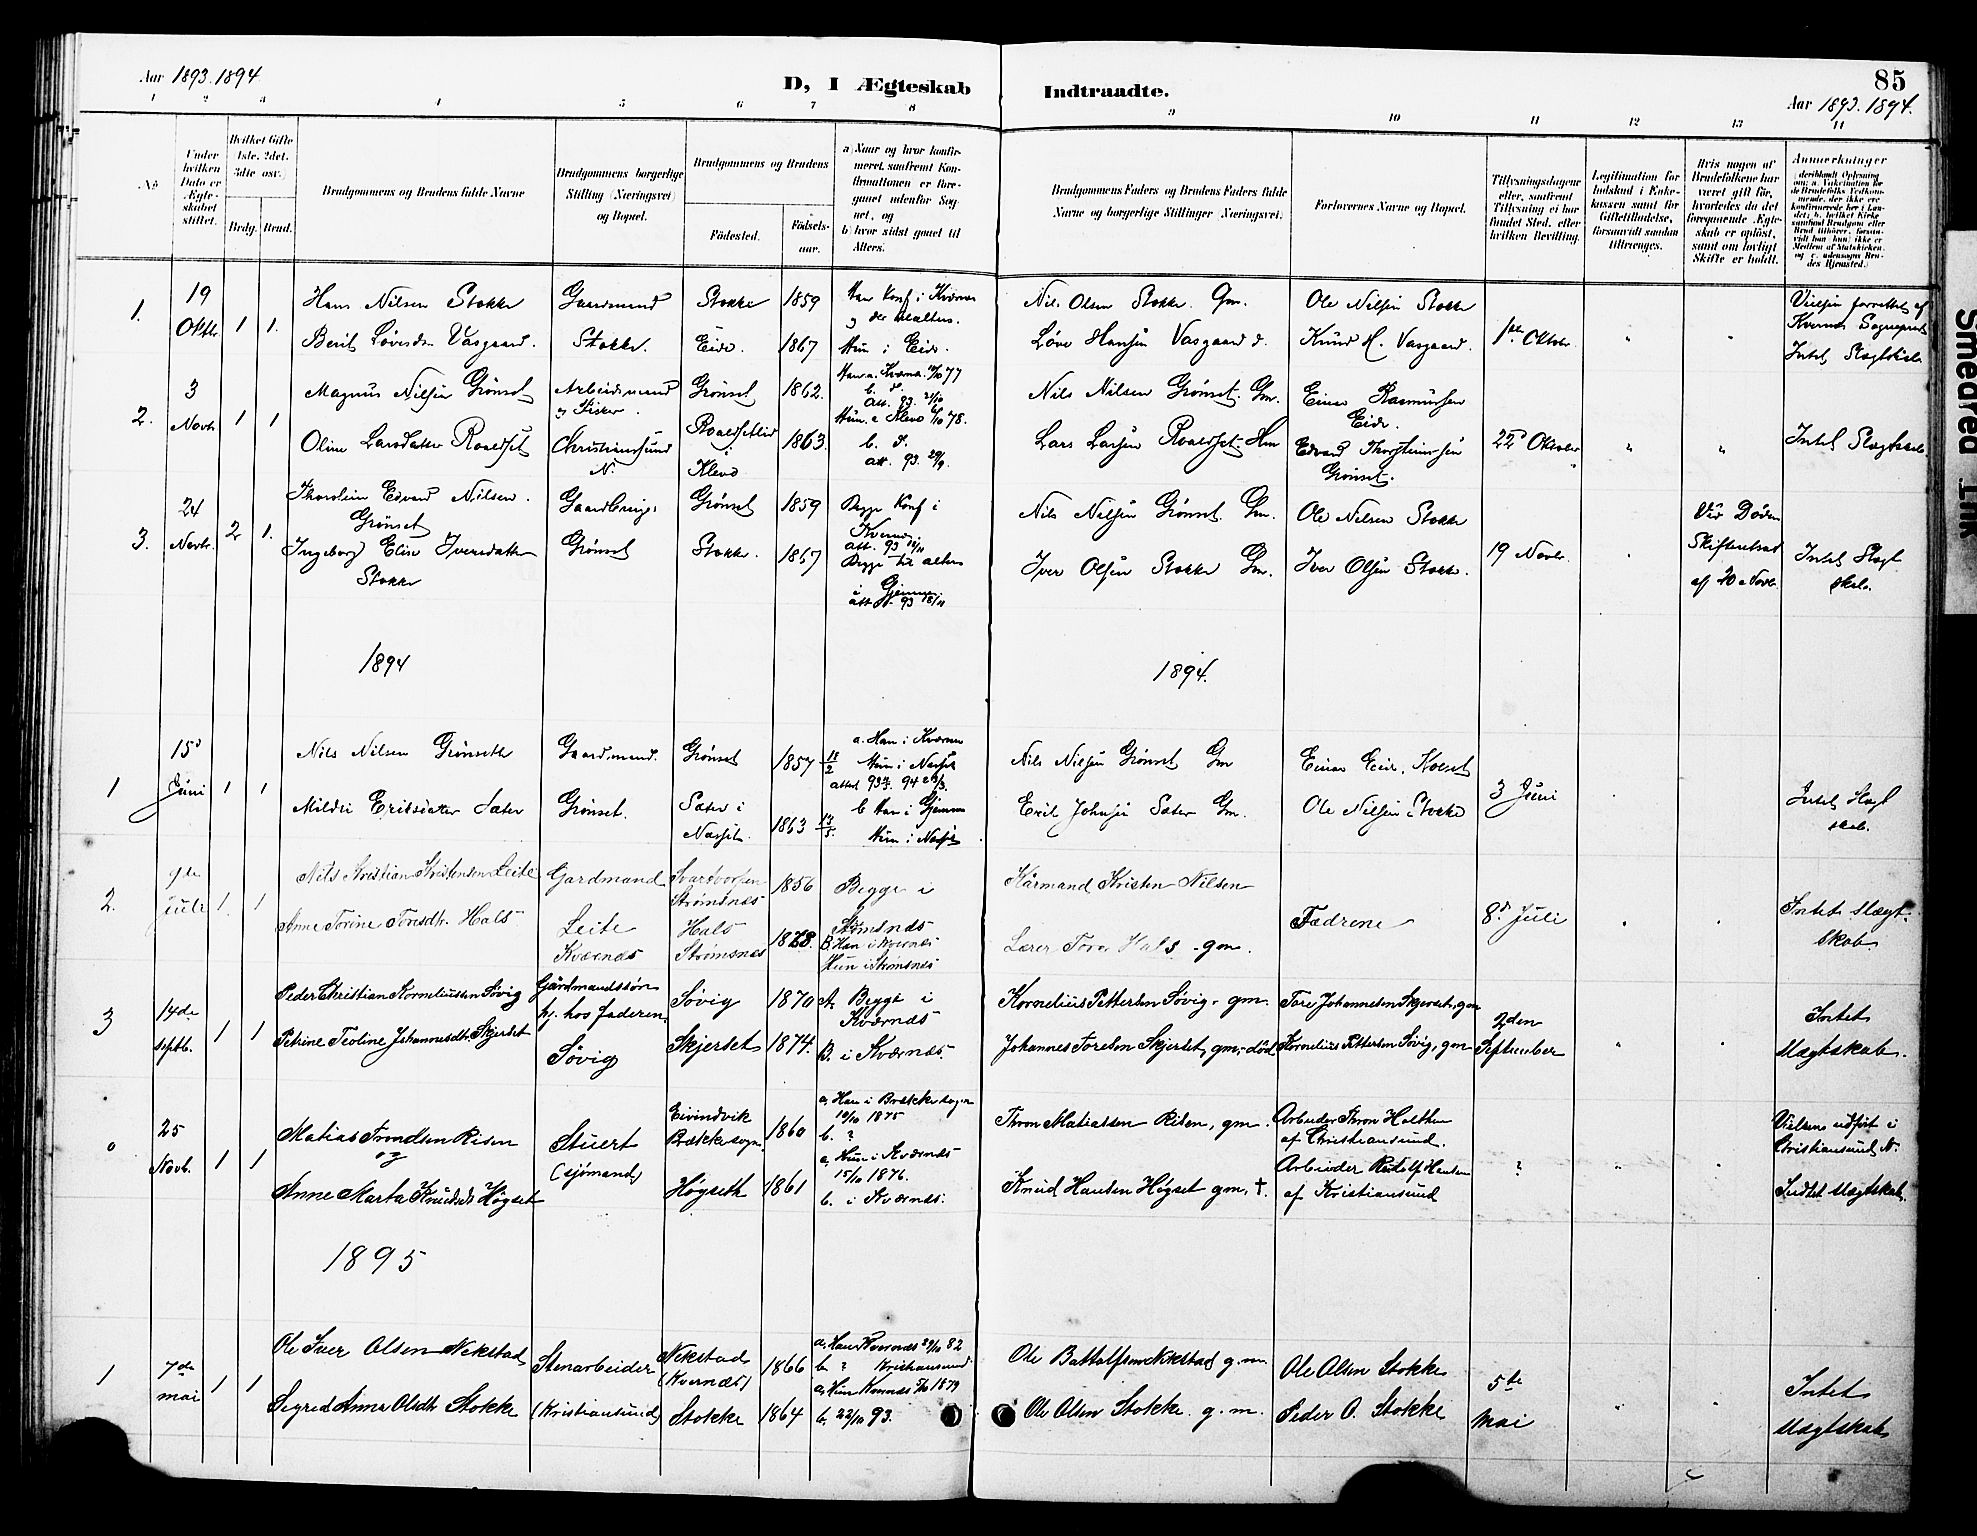 Aar 1893. 1894
D, I Ægteskab Indtraadte.
85
Aar 1893. 1894.
1 2 3 4 5 6 7 8 9 10 11 12 13 14
No
Under hvilken Dato er Ægteskabet stiftet.
Hvilket Gifte 1ste, 2det, 3die osv.)
Brdg. Brud.
Brudgommens og Brudens fulde Navne
Brudgommens borgerlige Stilling (Næringsvei) og Bopæl.
Brudgommens og Brudens
Fødested.
Fødselsaar.
a) Naar og hvor konfirmeret, saafremt Konfirmationen er foregaaet udenfor Sognet, og
b) hvor sidst gaaet til Alters.
Brudgommens Faders og Brudens Faders fulde Navne og borgerlige Stillinger (Næringsvei)
Forlovernes Navne og Bopæl.
Tillysningsdagene eller, saafremt Tillysning ei har fundet Sted, efter hvilken Bevilling.
Legitimation for Indskud i Enkekassen samt for Giftetilladelse, forsaavidt saadan tiltrænges.
Hvis nogen af Brudefolkene har været gift før, hvorledes da det foregaaende Ægteskab er opløst, samt om lovligt Skifte er holdt.
Anmærkninger
1.
19 Oktbr
1 1.
Hans Nilsen Stokke
Berit Løvesdr. Vasgaard.
Gaardmand
Stokke.
Stokke
Eide.
1859
1867
Han Konf i Kvernes
Hun i Eide.
Nils Olsen Stokke. Gm.
Løve Hansen Vasgaard
Ole Nilsen Stokke
Knud H. Vasgaard.
1ste Oktober
Vielsen forrettet af
Kvernes Sognepræst
Intet Slægtskab
2.
3 Novbr
1 1
Magnus Nilsen Grønset
Oline Larsdatter Roaldset
Arbeidsmand
og Fisker.
Christianssund
N.
Grønset
Roaldsetlid
i Kleve
1862.
1863.
b. d.
att. 93.
Nils Nilsen Grønset. Gm.
Lars Larsen Roaldset. Gm
Einar Rasmussen
Eide.
Edvard Thorsteinsen
Grønset.
22 Oktober
Intet Slægtskab
3.
24 Novbr.
2 1.
Thorstein Edvard Nilsen.
Grønset
Ingeborg Elise Iversdatter
Stokke
Gaardbrug.
Grønset
Grønset
Stokke.
1859
1867
Begge Konf i
Kvernes
Begge til alters
i Gjemnes
Nils Nilsen Grønset. Gm.
Iver Olsen Stokke Gm.
Ole Nilsen Stokke
Iver Olsen Stokke.
19 Novbr.
Ved Døden
Skifteattest
af 20 Novbr
Intet Slægt
skab.
1894
1894.
1
15 Juni
1 1
Nils Nilsen Grønseth
Mildri Eriksdatter Sæter
Gaardmand.
Grønset.
Grønset
Sæter i
Nesset.
1857 18/2
1863 13/5.
a. Han i Kvernes
Hun i Nesset
b Han i Gjemnes
Hun i Nesset
Nils Nilsen Grønset Gm
Erik Johnsen Sæter Gm.
Einar Eide,
Ole Nilsen Stokke
3 Juni
Intet Slægt
skab.
2.
9de Juli
1. 1
Nils Kristian Kristensen Leite
Anne Torine Toresdtr. Hals
Gardmand
Leite
Kværnes
Strømsnes
Hals
Strømsnes
1856
1868.
Begge i
Strømsnes
B. Han i Kvernes
Hun i Strømsnes
Kårmand Kristen Nilsen
Lærer Tore Hals - gm.
Fædrene
8d Juli
Intet Slægt-
skab
3
14de septb.
1 1
Peder Christian Korneliussen Søvig
Petrine Teoline Johannesdtr. Skjerset
Gårdmandssøn
hj. hos faderen,
Søvig
Søvig
Skjerset
1870
1874.
A. Begge i
Kværnes
B. i Kværnes.
Kornelius Pettersen Søvig, gm.
Johannes Toresen Skjerset, gm, død
Tore Johannesen Skjerset, gm
Kornelius Pettersen Søvig, gm
2den
September
Intet
slægtskab.
0
25 Novb.
1 1
Matias Trondsen Risen
og
Anne Marta Knudsdt. Høgset
Stuert
(sjømand)
Eivindvik
Brækkesogn
Høgseth
1860
1861
a, Han i Brekke sogn
10/10 1875
b. ?
a, Hun i Kværnes
15/10 1876.
b. i Kværnes.
Thron Matiassen Risen, gm.
Knud Hansen Høgset gm. †.
Arbeider Thron Holthen
af Christianssund.
Arbeider Rudolf Hansen
af Kristiansund
?
Vielsen udført i
Christianssund N.
Indtet slægtskab.
1895
1
7de mai
1 1
Ole Iver Olsen Nekstad
Segred Anna Olsdtr Stokke
Stenarbeider
(Kristiansund)
Nekstad
(Kvernes)
Stokke
1866
1864
b. ? Kristiansund
b. 22/10 93.
Ole Battolfsen Nekstad g.m.
Ole Olsen Stokke. g. m.
Ole Olsen Stokke
Peder O. Stokke
5te
Mai
Intet
slægtskab
Smeared Ink